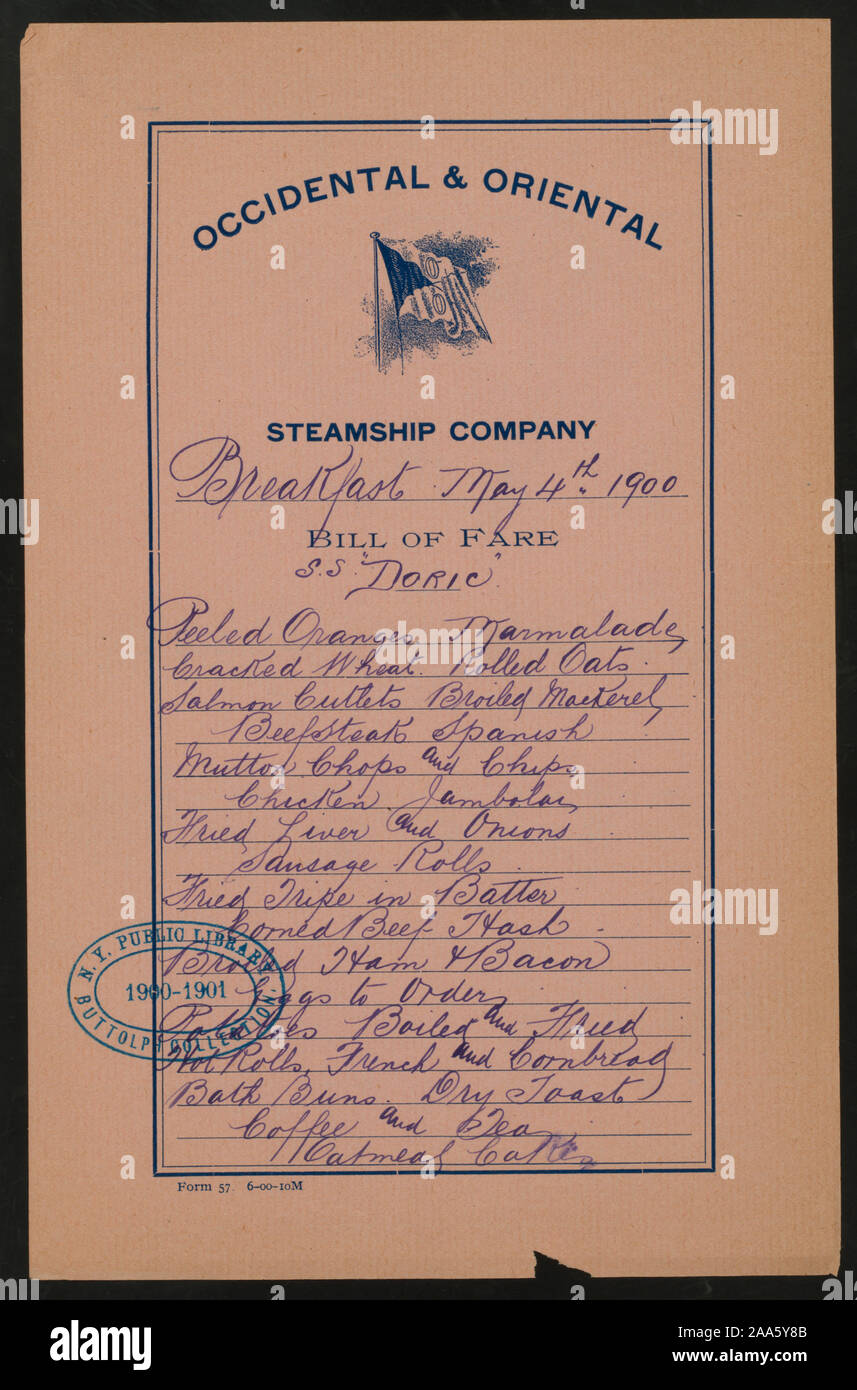 OCCIDENTAL & ORIENTAL
O
O
STEAMSHIP COMPANY
Breakfast May 4th. 1900
BILL OF FARE
S.S. "DORIC"
Peeled Oranges Marmalade
Cracked Wheat. Rolled Oats.
Salmon Cutlets Broiled Mackerel
Beefsteak Spanish
Mutton Chops and Chips
Chicken Jambolai
Fried Liver and Onions
Sausage Rolls
Fried Tripe in Batter
Corned Beef Hash
Broiled Ham & Bacon
Eggs to Order
Potatoes Boiled and Fried
Hot Rolls, French and Cornbread
Bath Buns. Dry Toast
Coffee and Tea
Oatmeal Cakes
N.Y. PUBLIC LIBRARY
1900-1901
BUTTOLPH COLLECTION
Form 57. 6-00-10M
alamy
a
Image ID: 2AA5Y8B
www.alamy.com